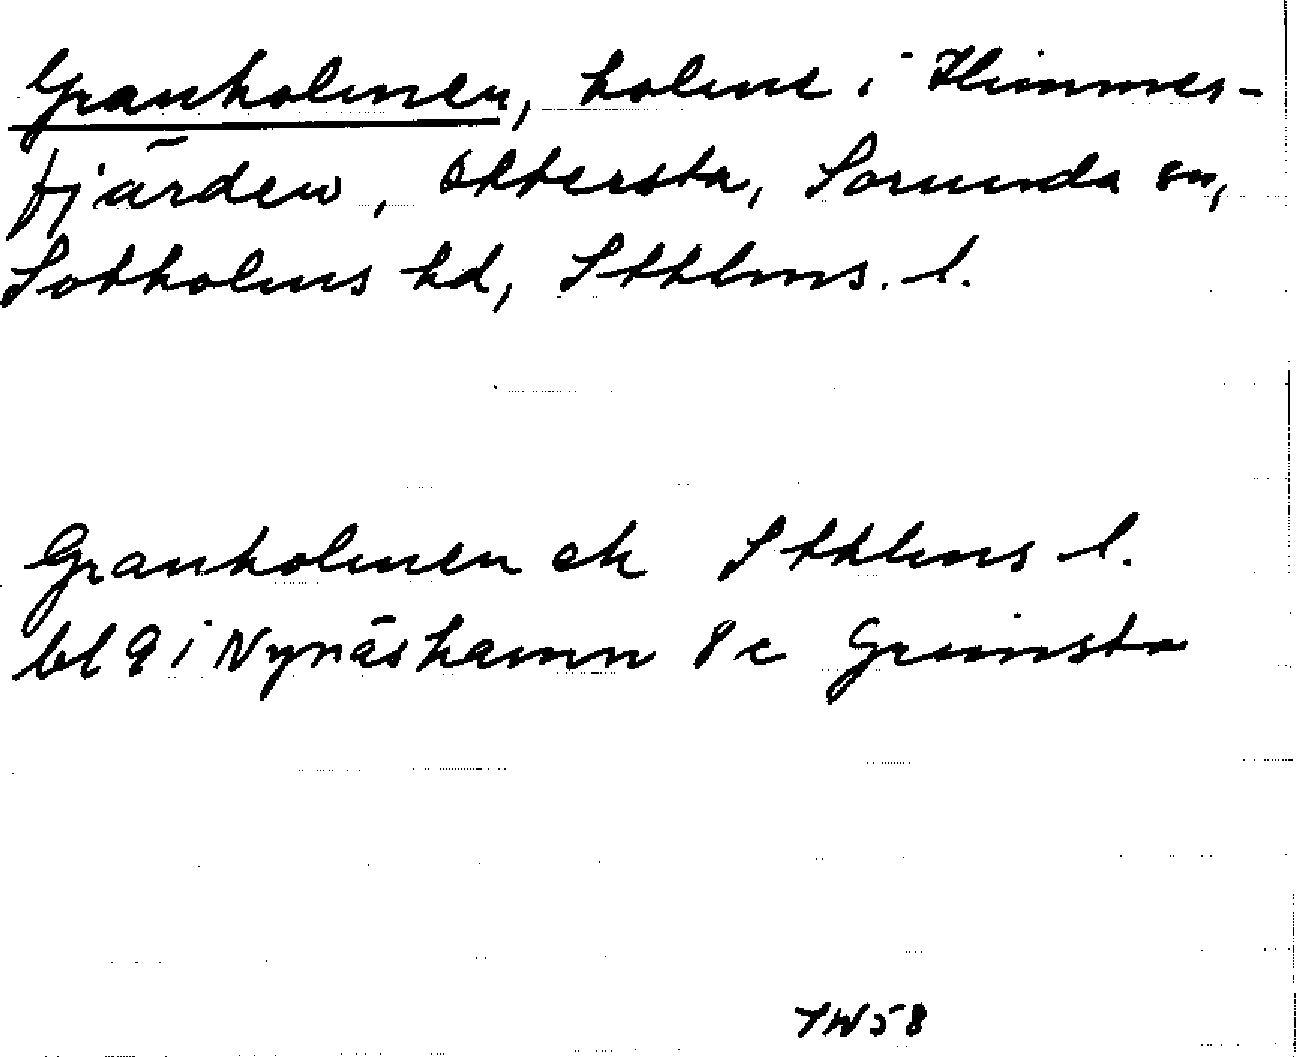 Granholmen, holme i Himmer-
fjärden, Ottersta, Sorunda sn,
Sotholms hd, Sthlms. l.
Granholmen ek Sthlms l.
bl 9 i Nynäshamn 8c Grimsta
TW58